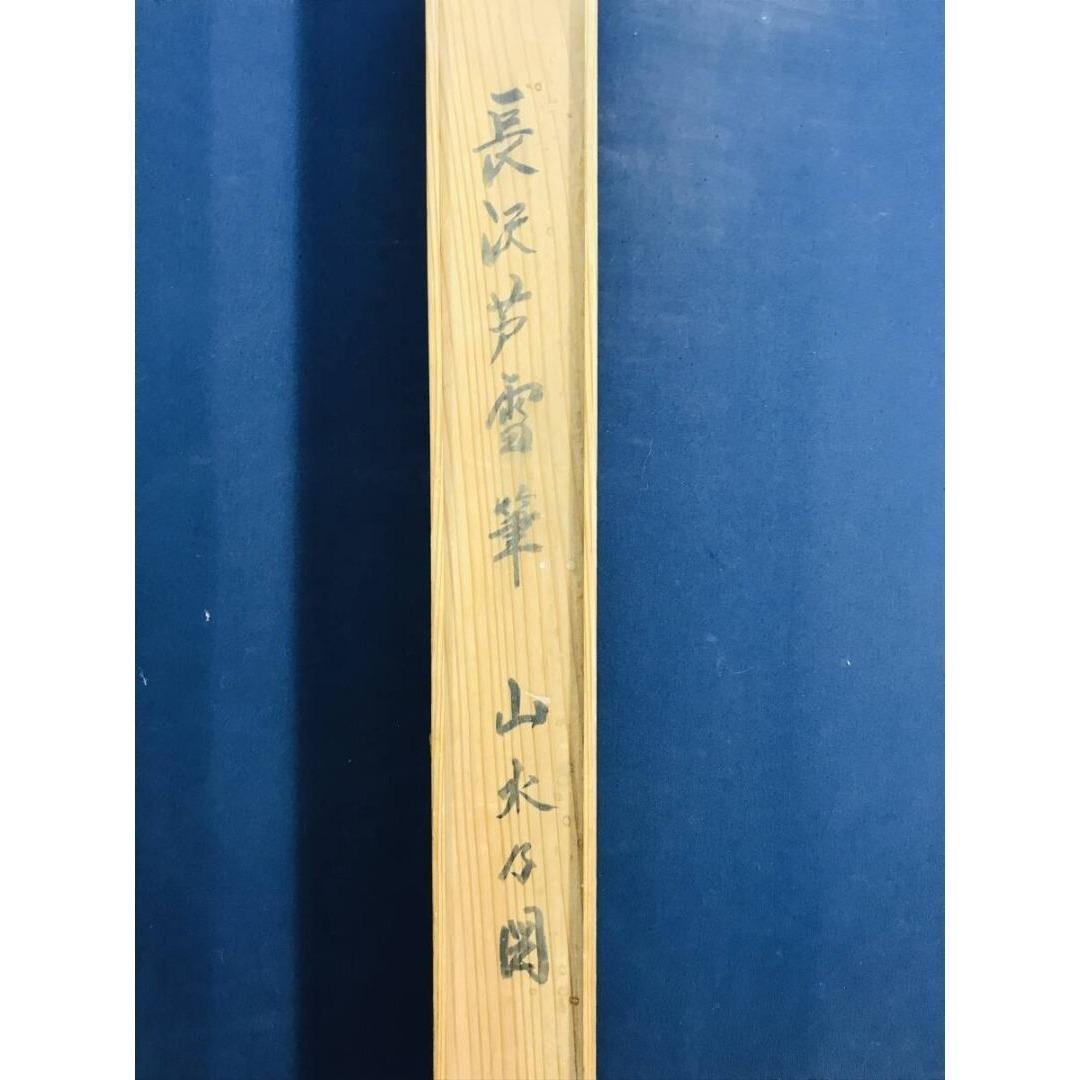 長沢芦雪筆 山水乃図